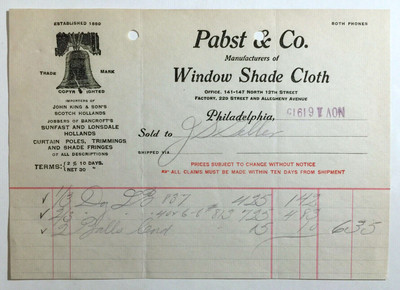 ESTABLISHED 1892
BOTH PHONES
TRADE MARK
COPYRIGHTED
IMPORTERS OF
JOHN KING & SON'S
SCOTCH HOLLANDS
JOSEPH OF BANCROFT'S
SUNFAST AND LONSDALE
HOLLANDS
CURTAIN POLES, TRIMMINGS
AND SHADE FRINGES
OF ALL DESCRIPTIONS
TERMS: 2% 10 DAYS.
NET 30
Pabst & Co.
Manufacturers of
Window Shade Cloth
OFFICE, 141-147 NORTH 12TH STREET
FACTORY, 22D STREET AND ALLEGHENY AVENUE
Philadelphia, NOV
Sold to
SHIPPED VIA
PRICES SUBJECT TO CHANGE WITHOUT NOTICE
ALL CLAIMS MUST BE MADE WITHIN TEN DAYS FROM SHIPMENT
1/3 Dz 137 425 142
2/3 725 483
2 Balls Cord 15 10 635